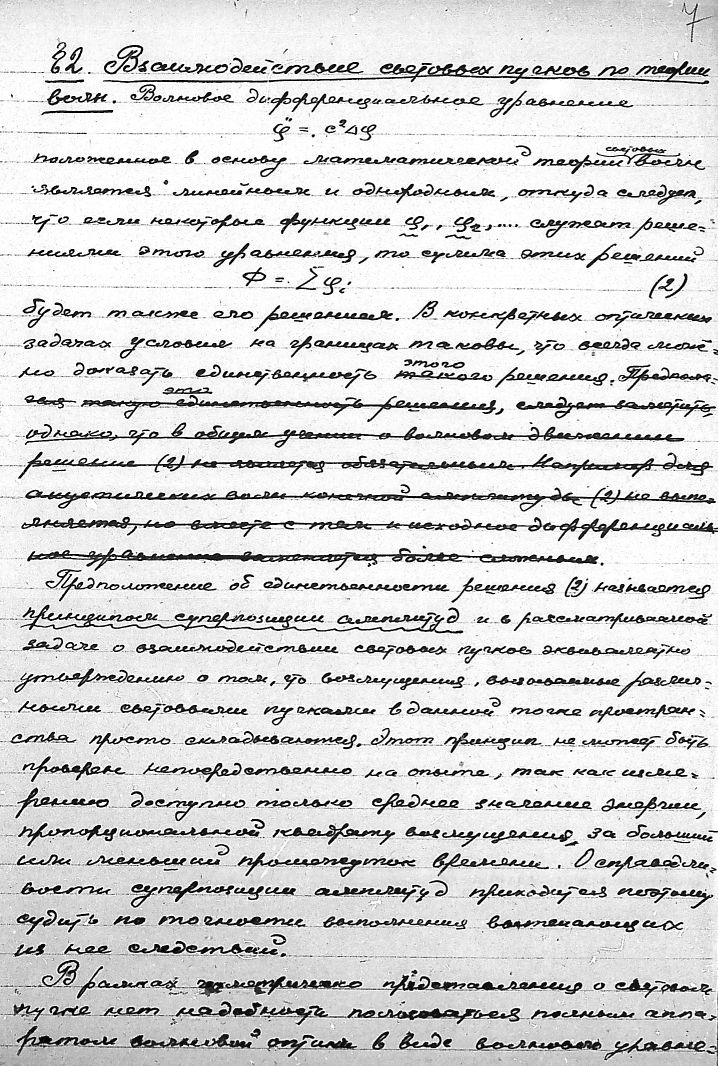 7
§2. Взаимодействие световых пучков по теории
волн. Волновое дифференциальное уравнение
φ̈ = c²Δφ
световых
положенное в основу математической теории волн
является линейным и однородным, откуда следует,
что если некоторые функции φ₁, φ₂, .... служат реше-
ниями этого уравнения, то сумма этих решений
Φ = Σφᵢ (2)
будет также его решением. В конкретных оптических
задачах условия на границах таковы, что всегда мож-
но доказать единственность этого такого решения. Предпола-
гая такую это единственность решения, следует заметить
однако, что в общем учении о волновом движении
решение (2) не является обязательным. Например для
акустических волн конечной амплитуды (2) не выпо-
лняется, но вместе с тем и исходное дифференциаль-
ное уравнение заменяется более сложным.
Предположение об единственности решения (2) называется
принципом суперпозиции амплитуд и в рассматриваемой
задаче о взаимодействии световых пучков эквивалентно
утверждению о том, что возмущения, вызываемые различ-
ными световыми пучками в данной точке простран-
ства просто складываются. Этот принцип не может быть
проверен непосредственно на опыте, так как изме-
рению доступно только среднее значение энергии,
пропорциональной квадрату возмущения, за больший
или меньший промежуток времени. О справедли-
вости суперпозиции амплитуд приходится поэтому
судить по точности выполнения вытекающих
из нее следствий.
В рамках геометрического представления о световом
пучке нет надобности пользоваться полным аппа-
ратом волновой оптики в виде волнового уравне-